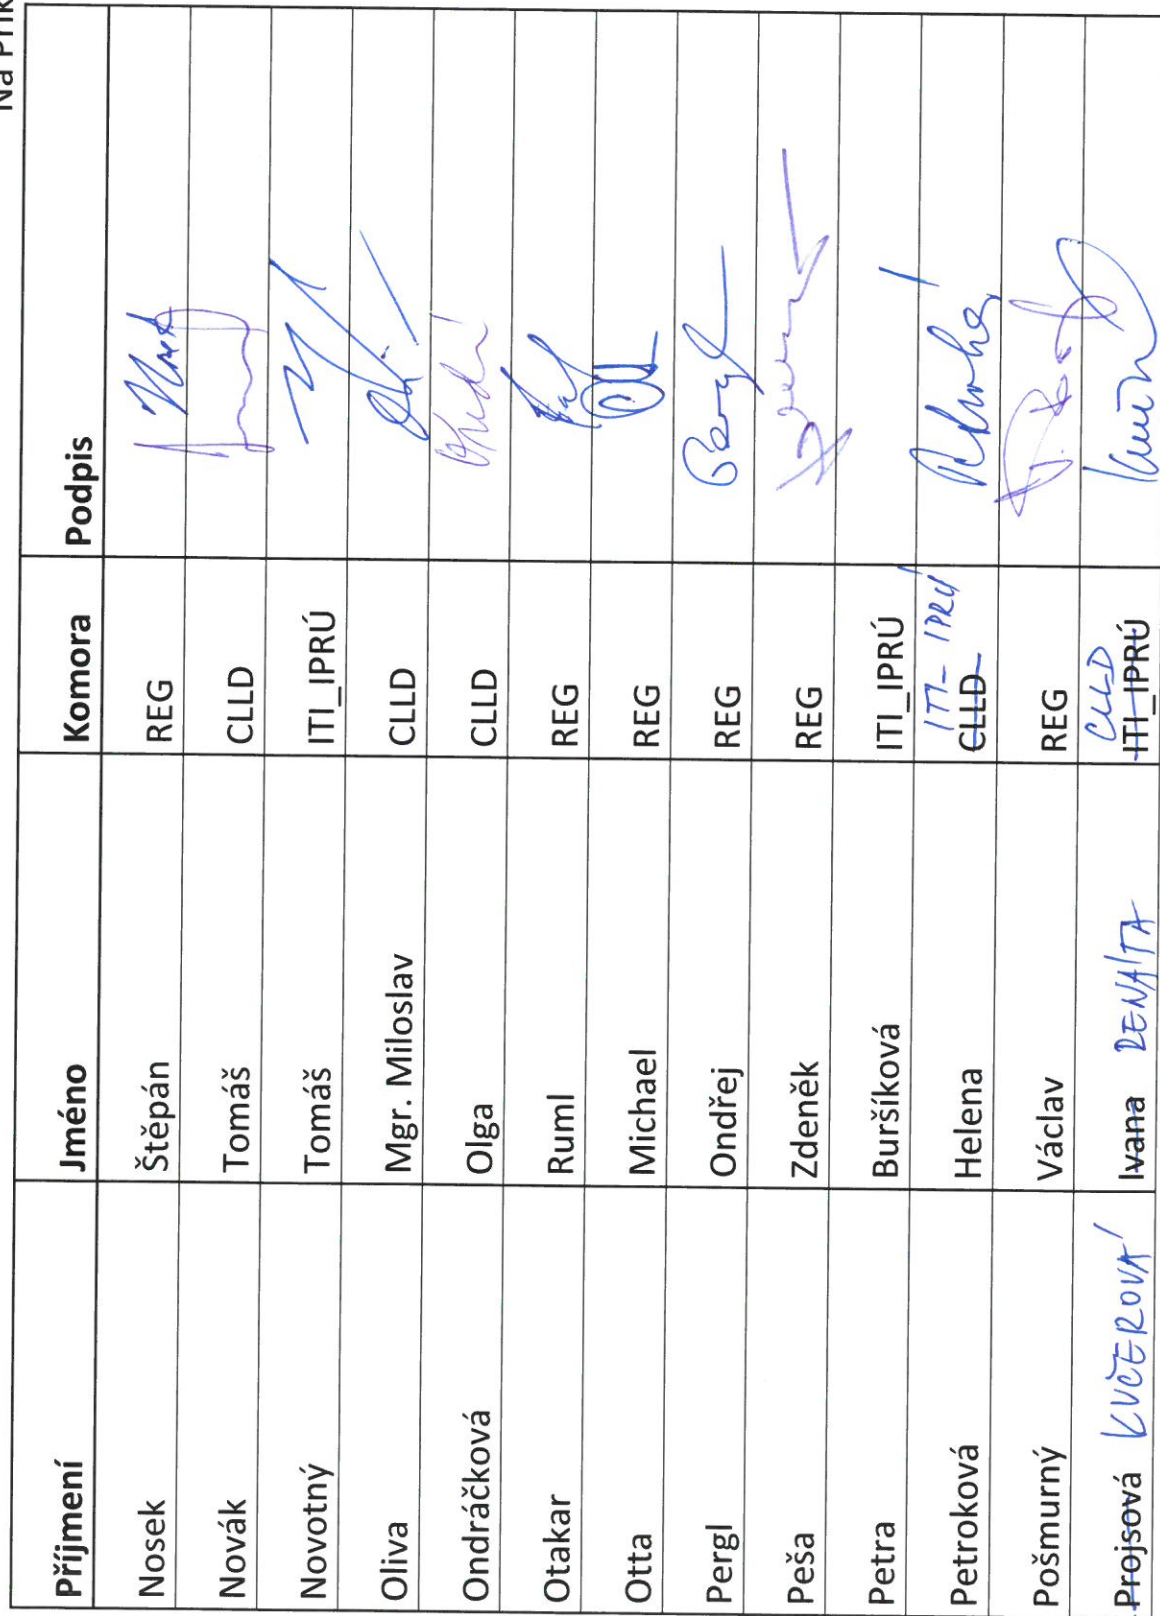 Na Přík
Příjmení Jméno Komora Podpis
Nosek Štěpán REG
Novák Tomáš CLLD
Novotný Tomáš ITI_IPRÚ
Oliva Mgr. Miloslav CLLD
Ondráčková Olga CLLD
Otakar Ruml REG
Otta Michael REG
Pergl Ondřej REG Pergl
Peša Zdeněk REG
Petra Buršíková ITI_IPRÚ
Petroková Helena CLLD ITI_IPRÚ
Pošmurný Václav REG
Projsová KUČEROVÁ Ivana RENATA ITI_IPRÚ CLLD